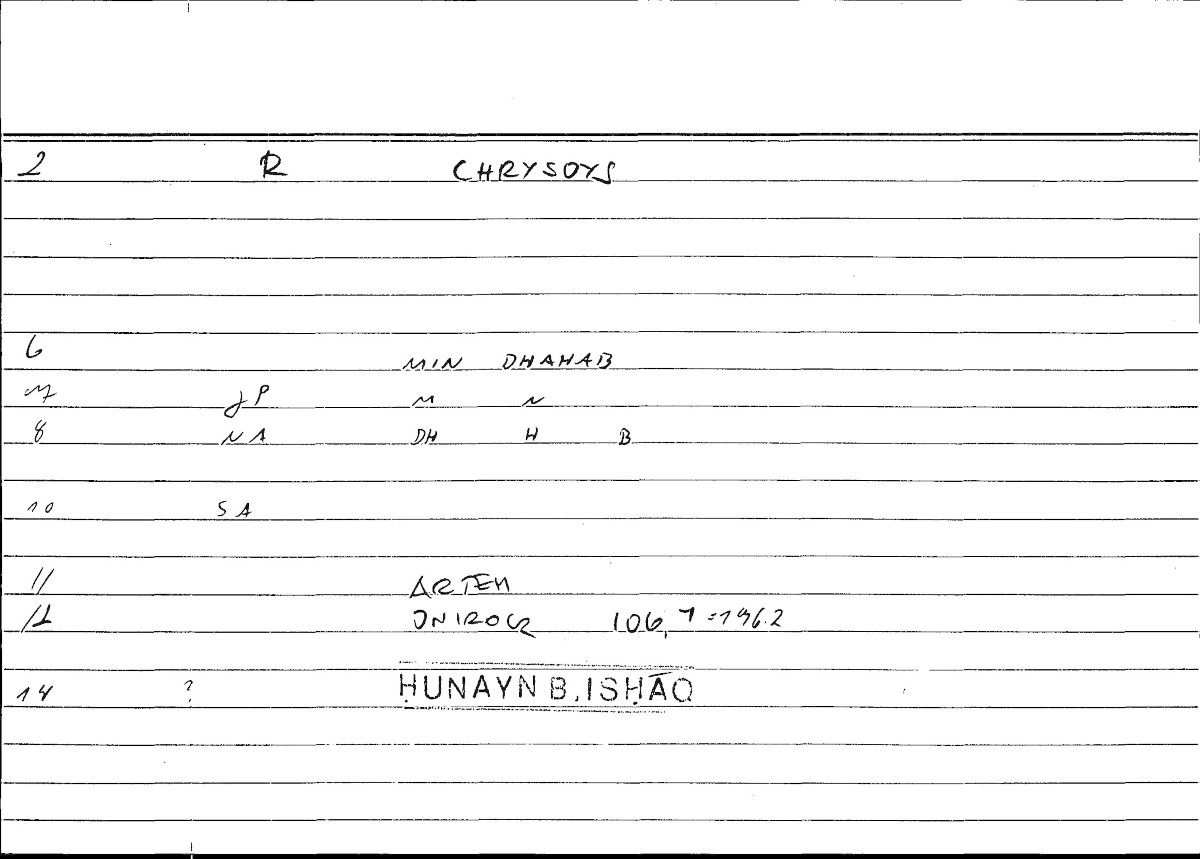 2 R CHRYSOYS
6 MIN DHAHAB
7 JP M N
8 NA DH H B
10 SA
11 ARTEM
12 ONIROCR 106,7=196.2
14 ? ḤUNAYN B. ISḤĀQ